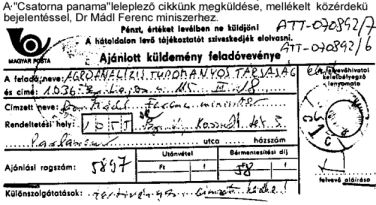 A "Csatorna panama" leleplező cikkünk megküldése, mellékelt közérdekű
bejelentéssel, Dr Mádl Ferenc miniszerhez.
Pénzt, értéket levélben ne küldjön!
A hátoldalon levő tájékoztatót szíveskedjék elolvasni.
ATT-070892/7
ATT-070892/6
MAGYAR POSTA
Ajánlott küldemény feladóvevénye
A feladó neve: AGROANALITIKAI TUDOMÁNYOS TÁRSASÁG
és címe: 1036
Címzett neve: Ferenc miniszter
Rendeltetési hely: 1055 Kossuth tér
Parlament utca házszám
Ajánlási ragszám: 5897
Utánvétel
Ft
Bérmentesítési díj
58
Különszolgáltatások:
A felvevőhivatal
keletbélyegző
lenyomata
felvevő aláírása